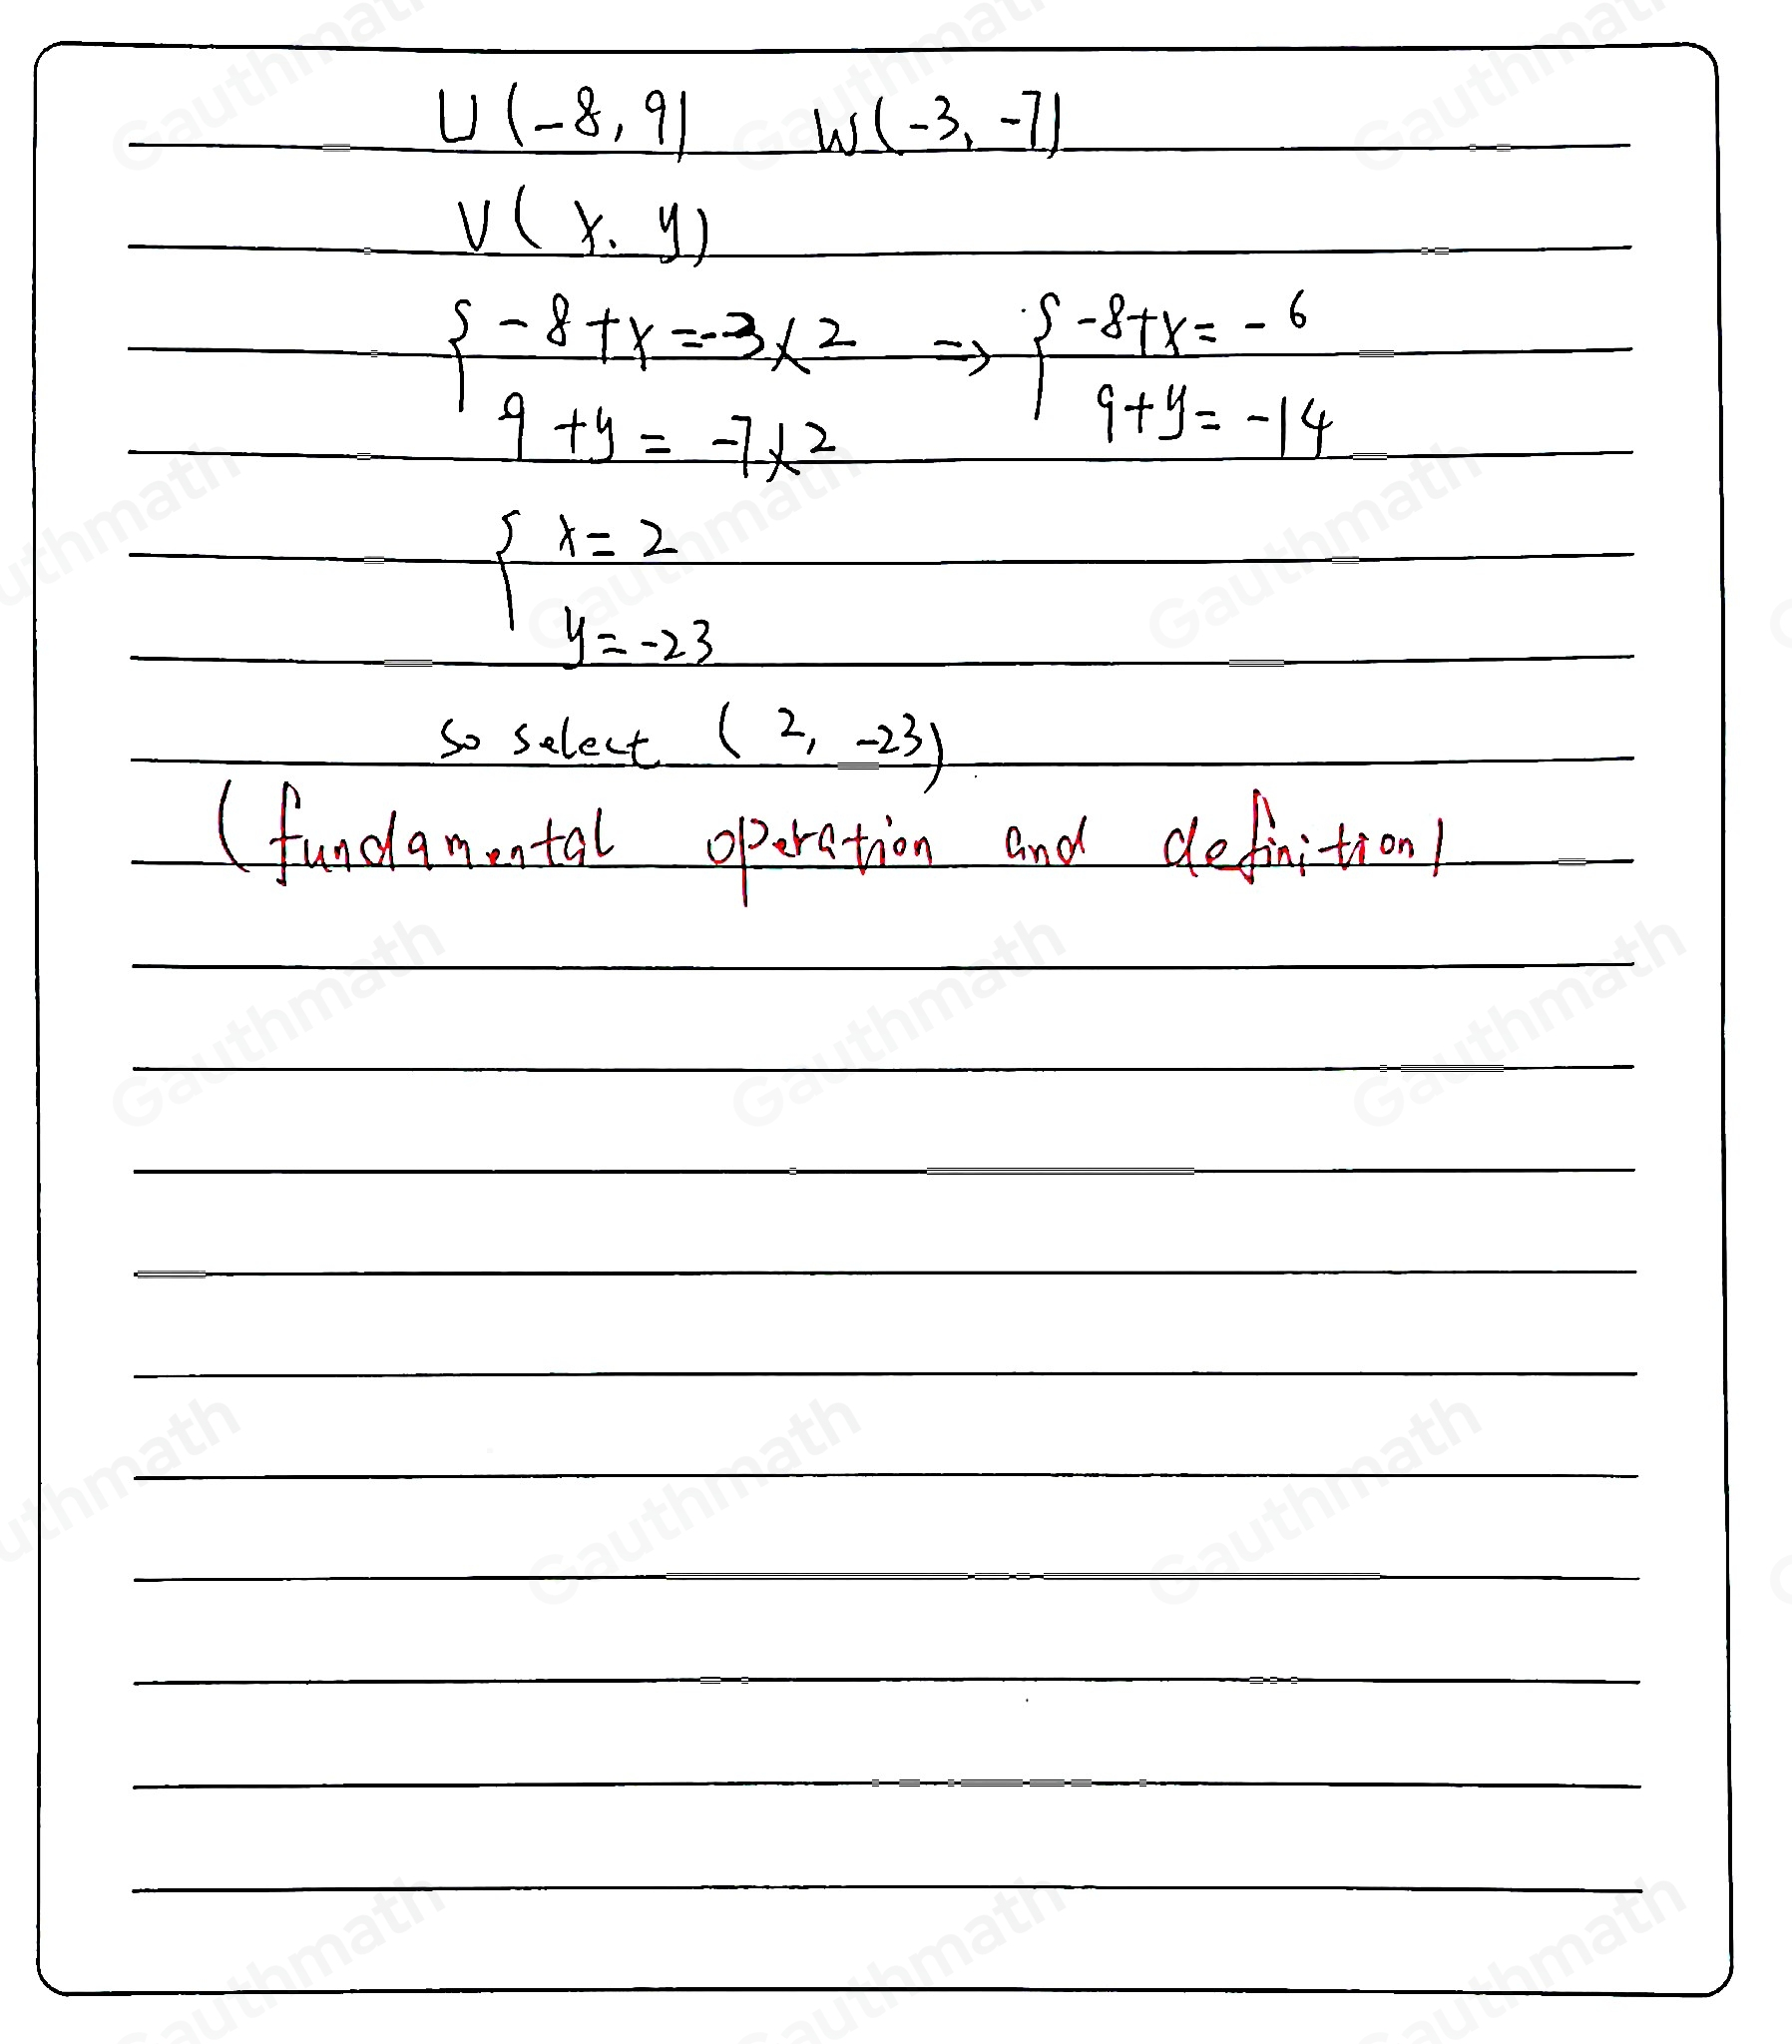 U(-8, 9) W(-3, -7)
V(x. y)
{ -8+x=-3×2 => { -8+x=-6
9+y=-7×2 9+y=-14
{ x=2
y=-23
So select (2, -23)
(fundamental operation and definition)
Gauthmath